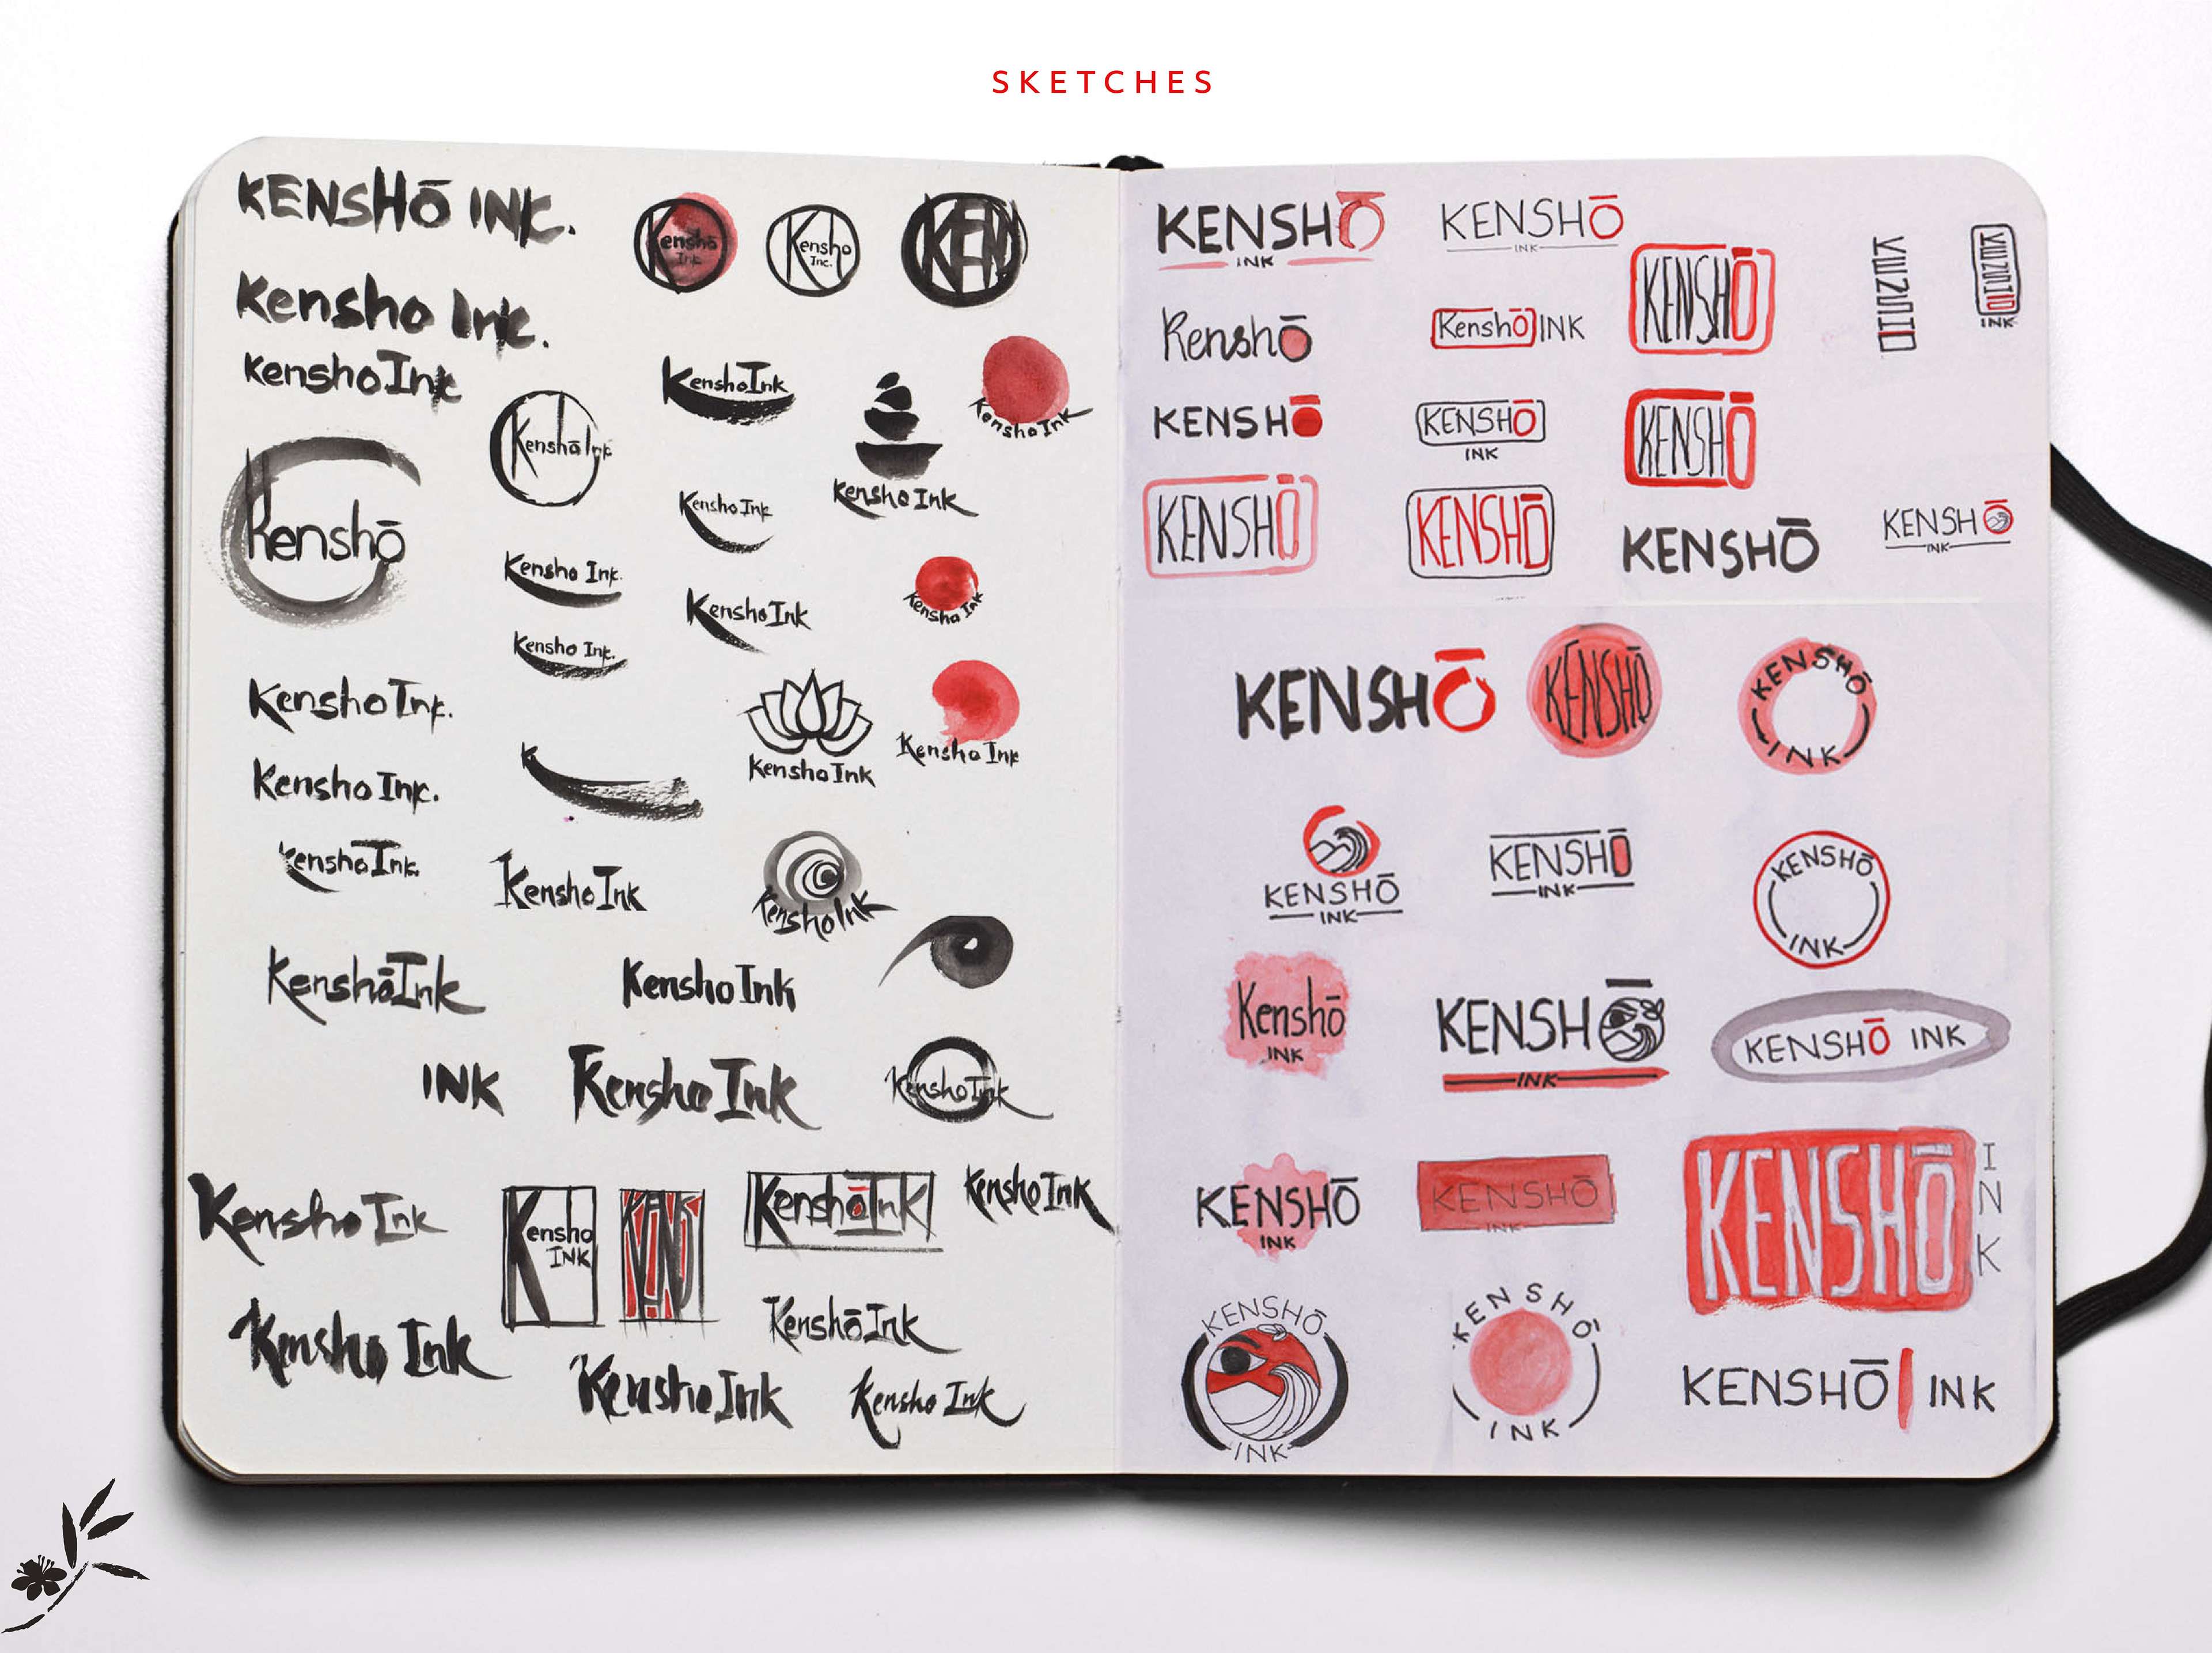 SKETCHES
KENSHŌ INK.
Kensho Ink.
KenshoInk
Kenshō
Kensho Ink.
Kensho Ink.
KenshoInk.
KenshōInk
INK
Kensho Ink
Kensho Ink
Kenshō
Ink
Kensho
Inc.
KEN
Kensho Ink
KenshoInk
Kensho Ink
Kensho Ink
KenshoInk
Kensho Ink.
Kensho Ink
Kensho Ink
Kensho Ink.
Kensho Ink
Kensho Ink
K
Kensho Ink
Kensho Ink
KenshoInk
Kensho Ink
Kensho Ink
KenshoInk
Kensho
INK
KenshōInk
Kensho Ink
KenshōInk
Kensho Ink
Kensho Ink
KENSHŌ
INK
KENSHŌ
INK
Kenshō
KenshŌ INK
KENSHŌ
KENSHŌ
INK
KENSHŌ
KENSHŌ
INK
KENSHŌ
KENSHŌ
KENSHŌ
KENSHŌ
KENSHŌ
INK
KENSHŌ
KENSHŌ
KENSHŌ
INK
KENSHŌ
INK
KENSHŌ
INK
KENSHŌ
INK
Kenshō
INK
KENSH
INK
KENSHŌ INK
KENSHŌ
INK
KENSHŌ
INK
KENSHŌ
INK
KENSHŌ
INK
KENSHŌ
INK
KENSHŌ INK